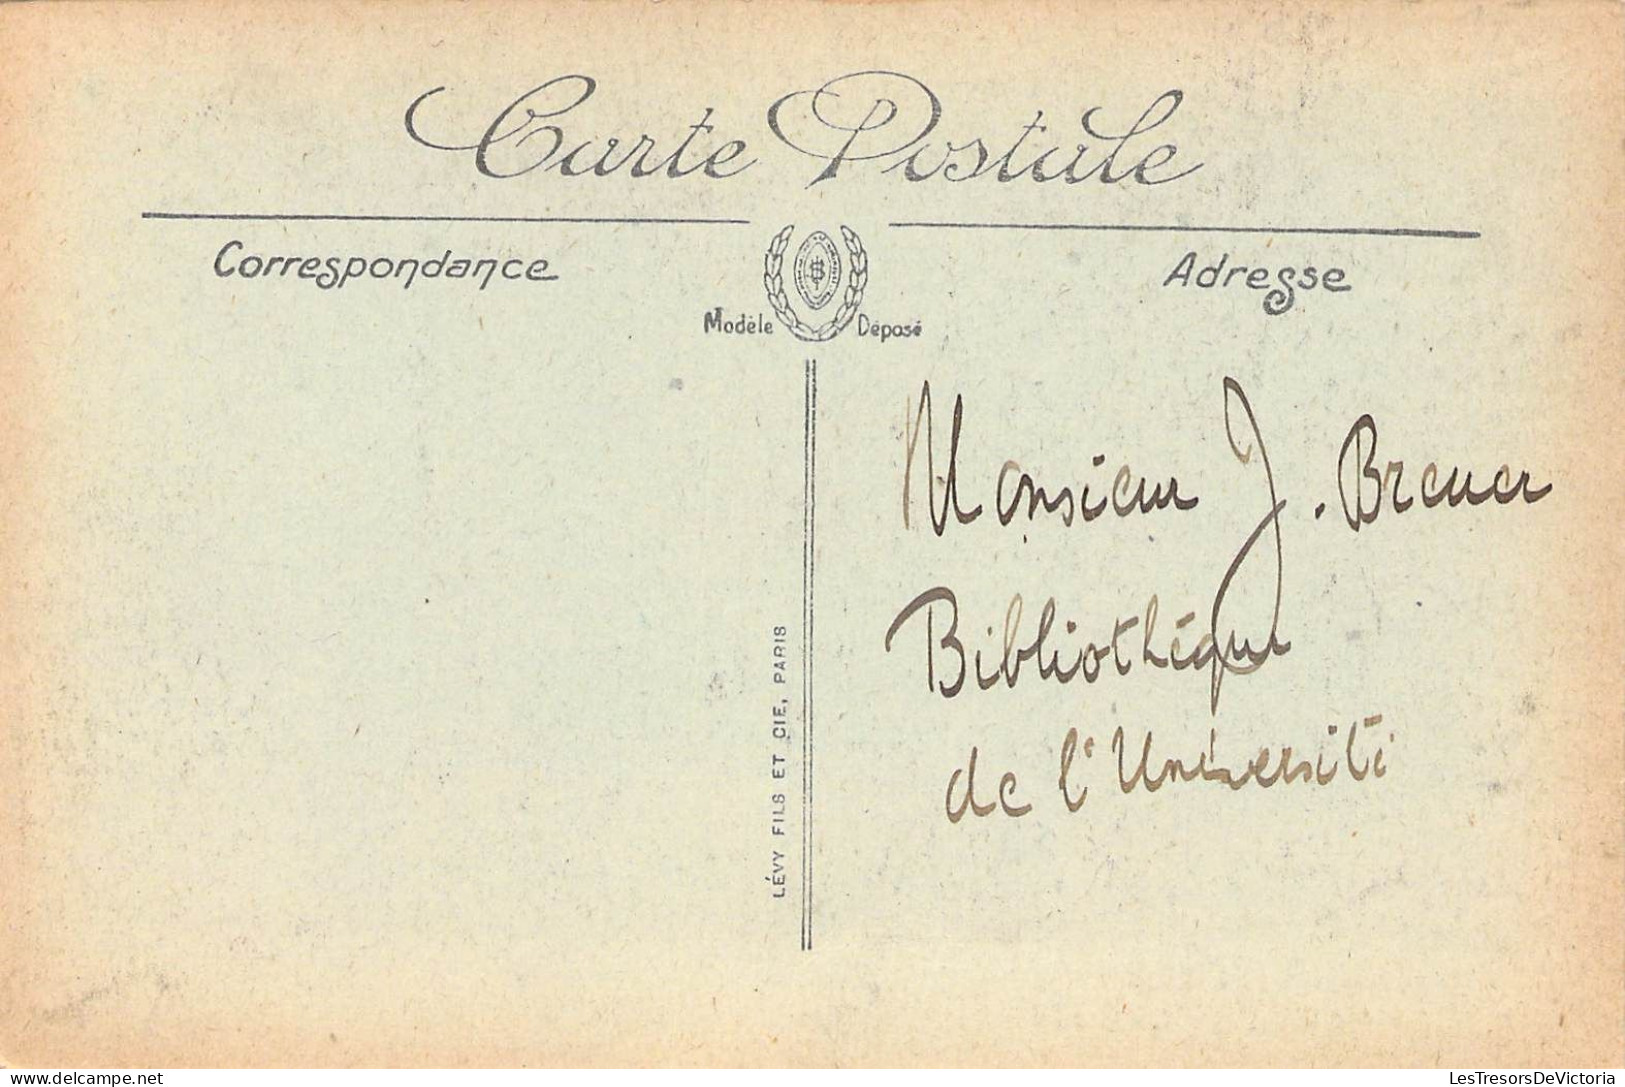 Carte Postale
Correspondance
Adresse
Modèle Déposé
LÉVY FILS ET CIE, PARIS
Monsieur J. Breuer
Bibliothèque
de l'Université
delcampe.net
LesTresorsDeVictoria